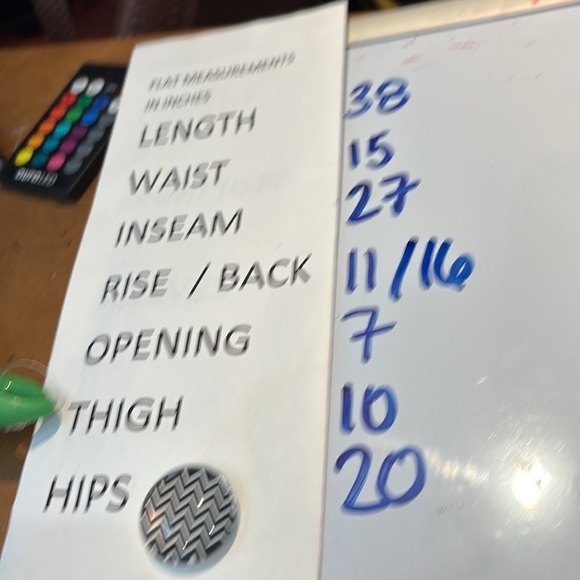 FLAT MEASUREMENTS
IN INCHES
LENGTH 38
WAIST 15
INSEAM 27
RISE / BACK 11/16
OPENING 7
THIGH 10
HIPS 20